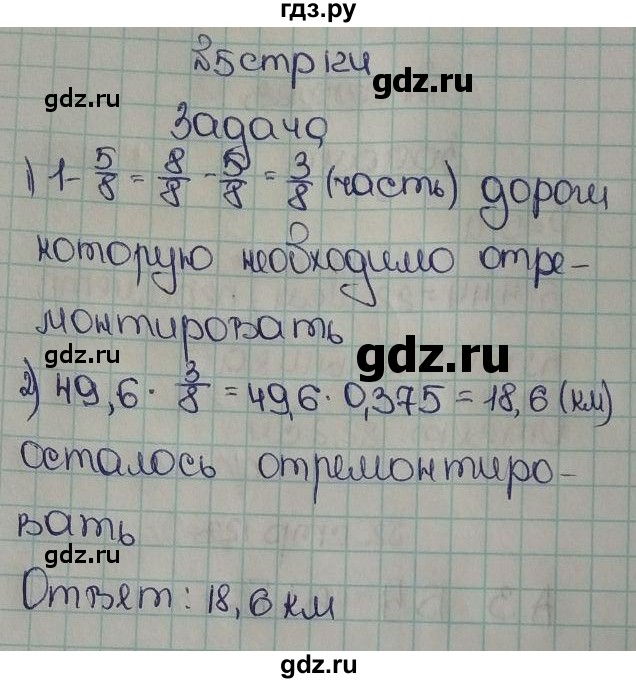 гдз.ру
№5 стр 124
gdz.ru
gdz.ru
Задача
1) 1 - 5/8 = 8/8 - 5/8 = 3/8 (часть) дороги
которую необходимо отре-
монтировать
gdz.ru
gdz.ru
2) 49,6 · 3/8 = 49,6 · 0,375 = 18,6 (км)
осталось отремонтиро-
вать
gdz.ru
gdz.ru
Ответ: 18,6 км
gdz.ru